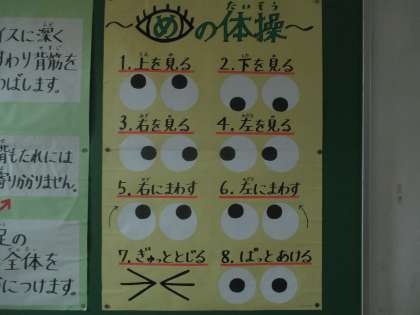 イスに深く
すわり背筋を
のばします。
背もたれには
寄りかかりません。
足の
全体を
につけます。
たいそう
～めの体操～
1.上を見る
2.下を見る
3.右を見る
4.左を見る
5.右にまわす
6.左にまわす
7.ぎゅっととじる
8.ぱっとあける